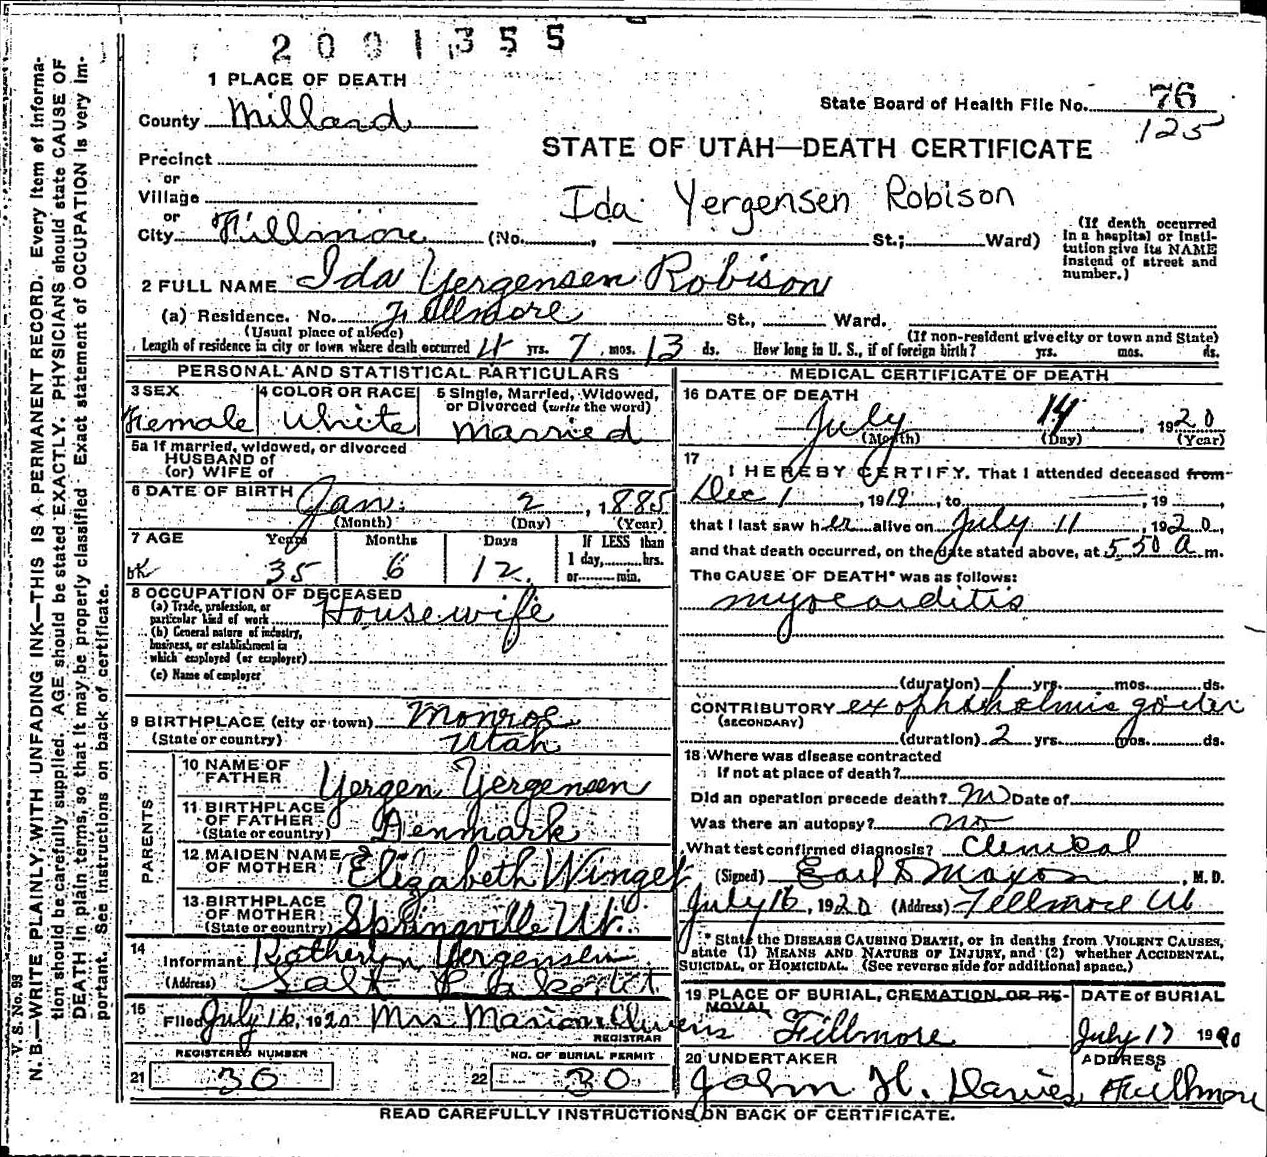 2001355
1 PLACE OF DEATH
County Millard
State Board of Health File No. 76
125
STATE OF UTAH—DEATH CERTIFICATE
Precinct
or
Village
or
City Fillmore (No. , St.; Ward)
Ida Yergensen Robison
(If death occurred in a hospital or institution give its NAME instead of street and number.)
2 FULL NAME Ida Yergensen Robison
(a) Residence. No. Fillmore St., Ward.
(Usual place of abode) (If non-resident give city or town and State)
Length of residence in city or town where death occurred 4 yrs. 7 mos. 13 ds. How long in U. S., if of foreign birth? yrs. mos. ds.
PERSONAL AND STATISTICAL PARTICULARS
3 SEX Female
4 COLOR OR RACE White
5 Single, Married, Widowed, or Divorced (write the word) Married
5a If married, widowed, or divorced
HUSBAND of
(or) WIFE of
6 DATE OF BIRTH Jan. 2, 1885
(Month) (Day) (Year)
7 AGE Years Months Days If LESS than
1 day, hrs.
or min.
35 6 12
8 OCCUPATION OF DECEASED
(a) Trade, profession, or particular kind of work Housewife
(b) General nature of industry, business, or establishment in which employed (or employer)
(c) Name of employer
9 BIRTHPLACE (city or town) Monroe
(State or country) Utah
PARENTS
10 NAME OF FATHER Yergen Yergensen
11 BIRTHPLACE OF FATHER (State or country) Denmark
12 MAIDEN NAME OF MOTHER Elizabeth Winget
13 BIRTHPLACE OF MOTHER (State or country) Springville Ut.
14
Informant Katherlyn Yergensen
(Address) Salt Lake
15
Filed July 16, 1920 Mrs Marion Owens
REGISTRAR
REGISTERED NUMBER
21 30
NO. OF BURIAL PERMIT
22 30
MEDICAL CERTIFICATE OF DEATH
16 DATE OF DEATH
July 14, 1920
(Month) (Day) (Year)
17
I HEREBY CERTIFY, That I attended deceased from
Dec 1, 1919, to , 19
that I last saw her alive on July 11, 1920,
and that death occurred, on the date stated above, at 5 50 a m.
The CAUSE OF DEATH* was as follows:
myocarditis
(duration) 1 yrs. mos. ds.
CONTRIBUTORY exophthalmic goiter
(SECONDARY)
(duration) 2 yrs. mos. ds.
18 Where was disease contracted
If not at place of death?
Did an operation precede death? no Date of
Was there an autopsy? no
What test confirmed diagnosis? Clenical
(Signed) Earl S Maxon, M. D.
July 16, 1920 (Address) Fellmore Ut
* State the DISEASE CAUSING DEATH, or in deaths from VIOLENT CAUSES,
state (1) MEANS AND NATURE OF INJURY, and (2) whether ACCIDENTAL,
SUICIDAL, or HOMICIDAL. (See reverse side for additional space.)
19 PLACE OF BURIAL, CREMATION, OR REMOVAL
Fillmore
DATE of BURIAL
July 17 1920
20 UNDERTAKER
John H. Davies
ADDRESS
Fillmore
READ CAREFULLY INSTRUCTIONS ON BACK OF CERTIFICATE.
V. S. No. 99
N. B.—WRITE PLAINLY, WITH UNFADING INK—THIS IS A PERMANENT RECORD. Every item of informa-
tion should be carefully supplied. AGE should be stated EXACTLY. PHYSICIANS should state CAUSE OF
DEATH in plain terms, so that it may be properly classified. Exact statement of OCCUPATION is very im-
portant. See instructions on back of certificate.